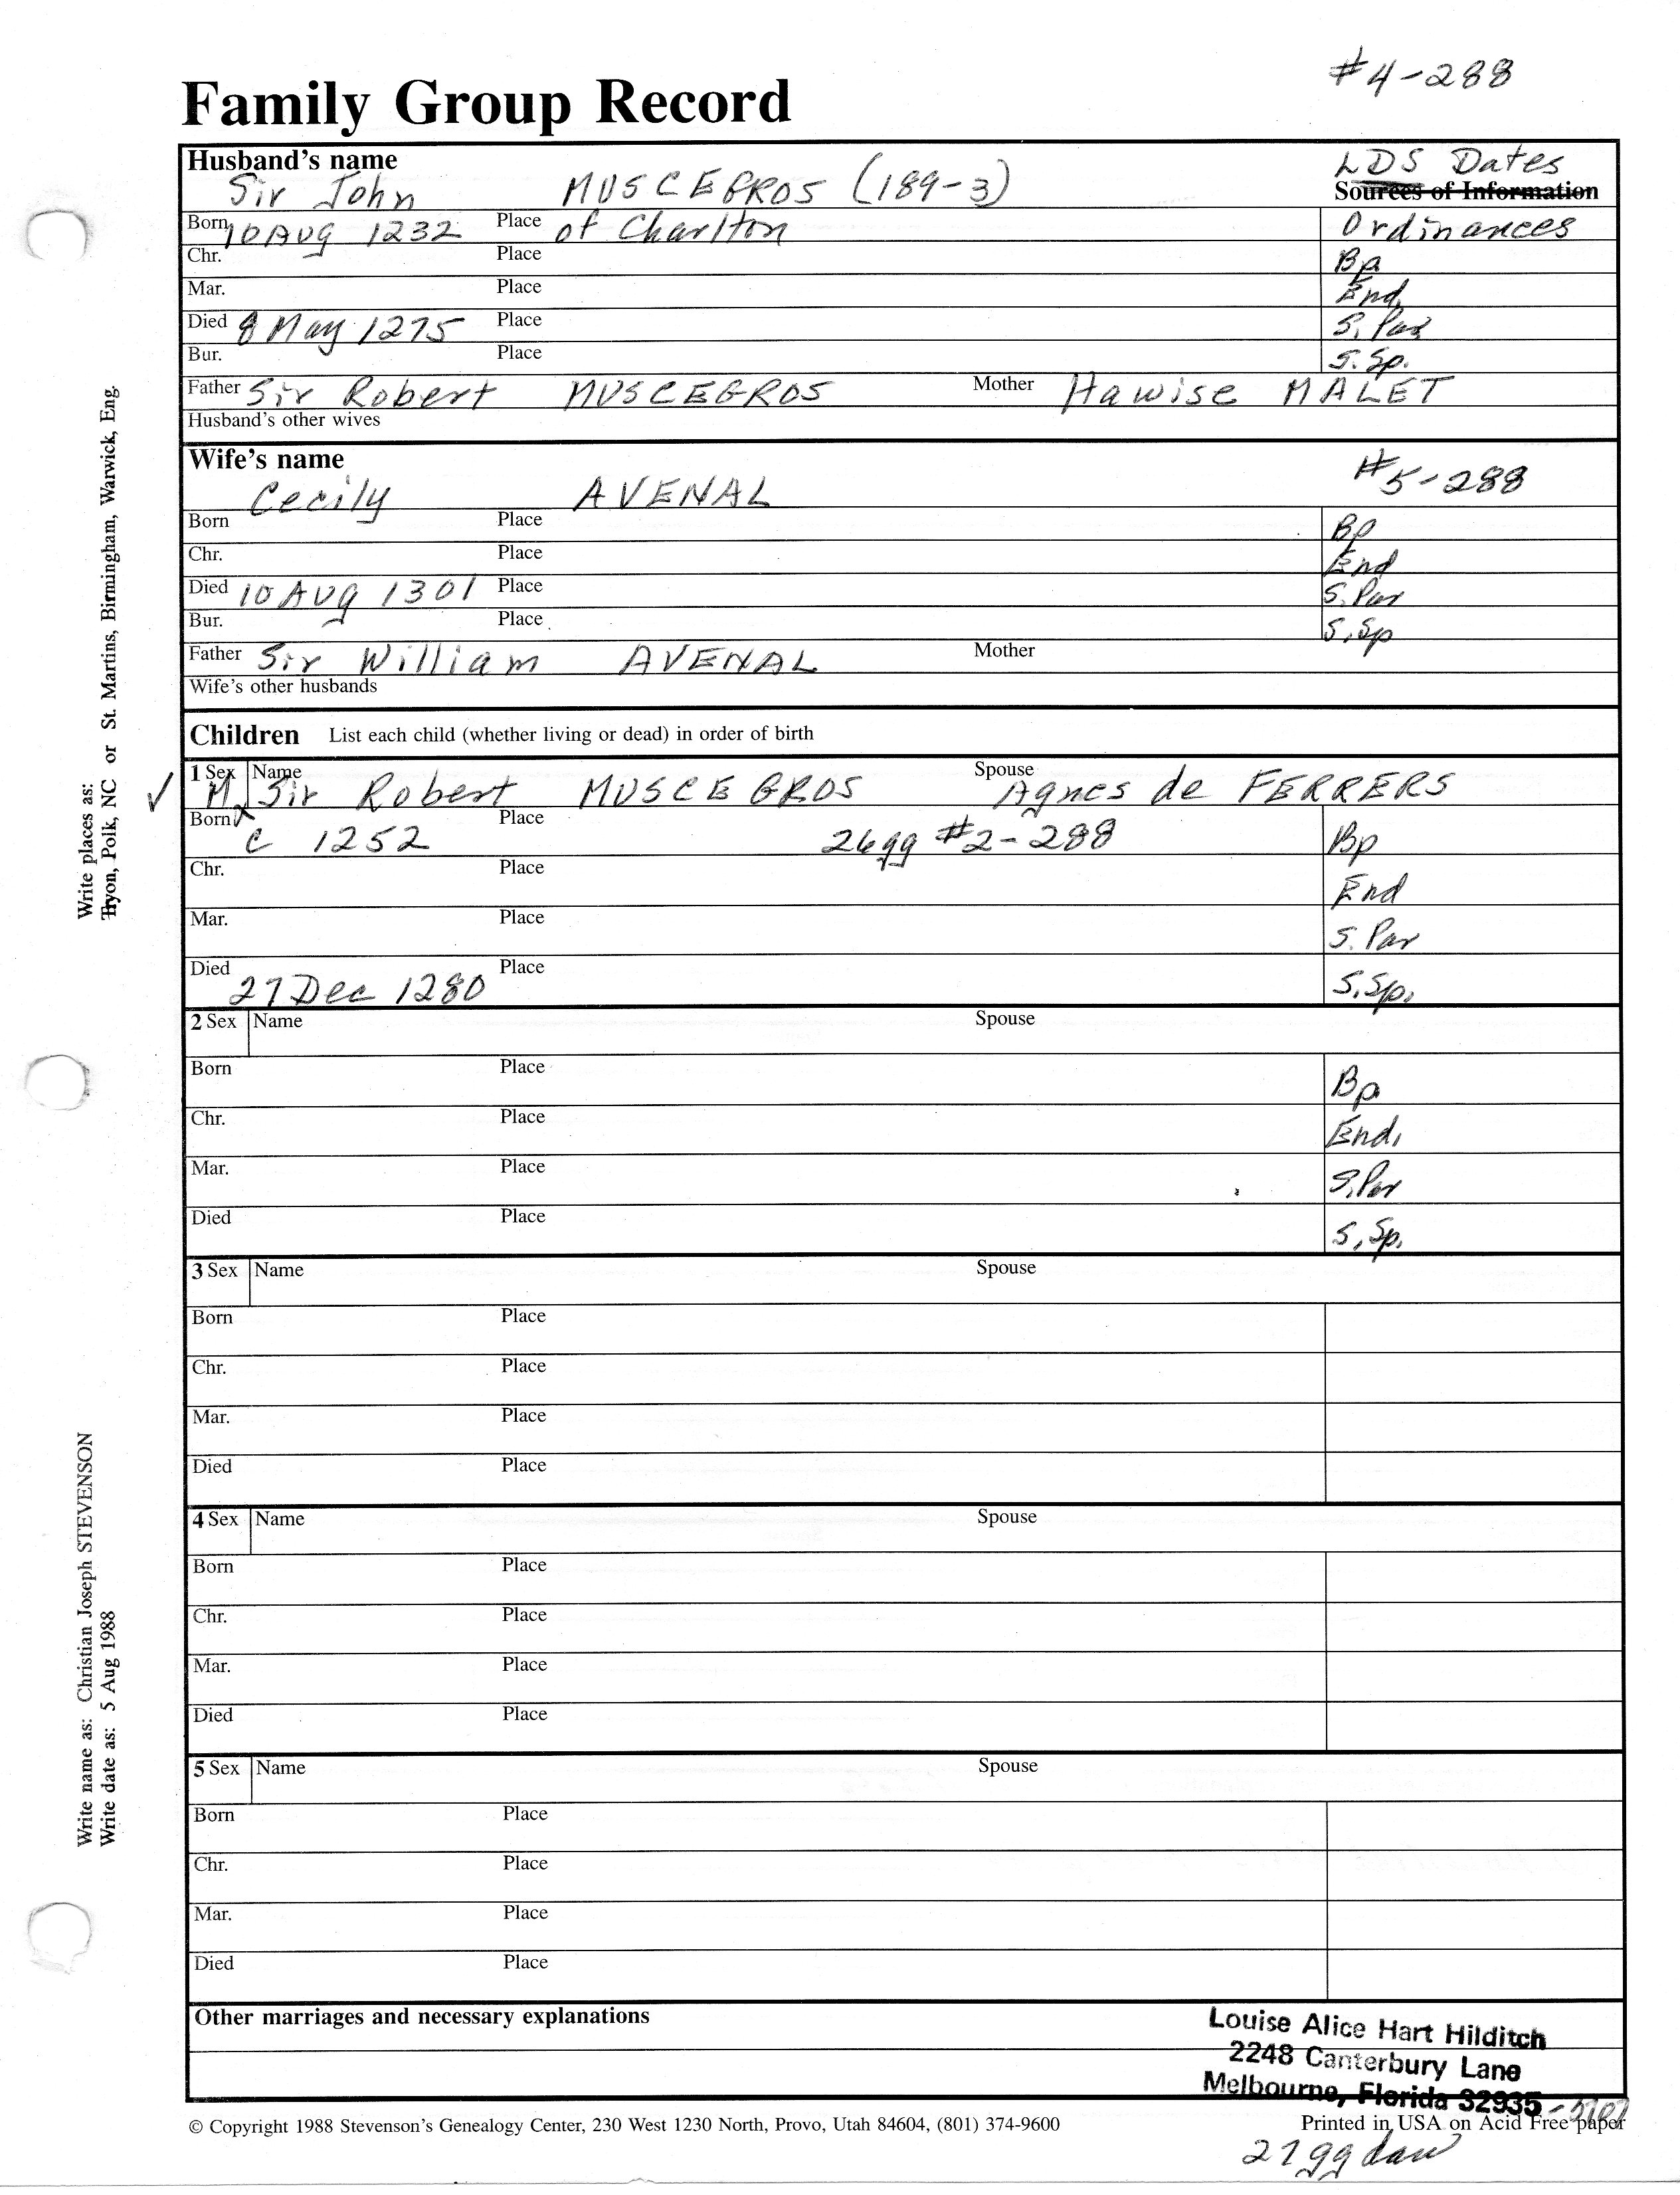 #4-288
Family Group Record
Husband's name LDS Dates
Sir John MUSCEGROS (189-3) Sources of Information
Born 10 Aug 1232 Place of Charlton Ordinances
Chr. Place Bp
Mar. Place End.
Died 8 May 1275 Place S. Par
Bur. Place S. Sp.
Father Sir Robert MUSCEGROS Mother Hawise MALET
Husband's other wives
Wife's name #5-288
Cecily AVENAL
Born Place Bp
Chr. Place End
Died 10 Aug 1301 Place S. Par
Bur. Place S. Sp
Father Sir William AVENAL Mother
Wife's other husbands
Children List each child (whether living or dead) in order of birth
1 Sex M Name Sir Robert MUSCEGROS Spouse Agnes de FERRERS
Born c 1252 Place 26gg #2-288 Bp
Chr. Place End
Mar. Place S. Par
Died 27 Dec 1280 Place S. Sp.
2 Sex Name Spouse
Born Place Bp
Chr. Place End.
Mar. Place S. Par
Died Place S. Sp.
3 Sex Name Spouse
Born Place
Chr. Place
Mar. Place
Died Place
4 Sex Name Spouse
Born Place
Chr. Place
Mar. Place
Died Place
5 Sex Name Spouse
Born Place
Chr. Place
Mar. Place
Died Place
Other marriages and necessary explanations
Louise Alice Hart Hilditch
2248 Canterbury Lane
Melbourne, Florida 32935
© Copyright 1988 Stevenson's Genealogy Center, 230 West 1230 North, Provo, Utah 84604, (801) 374-9600 Printed in USA on Acid Free paper
27gg dau
Write places as:
Tryon, Polk, NC or St. Martins, Birmingham, Warwick, Eng.
Write name as: Christian Joseph STEVENSON
Write date as: 5 Aug 1988